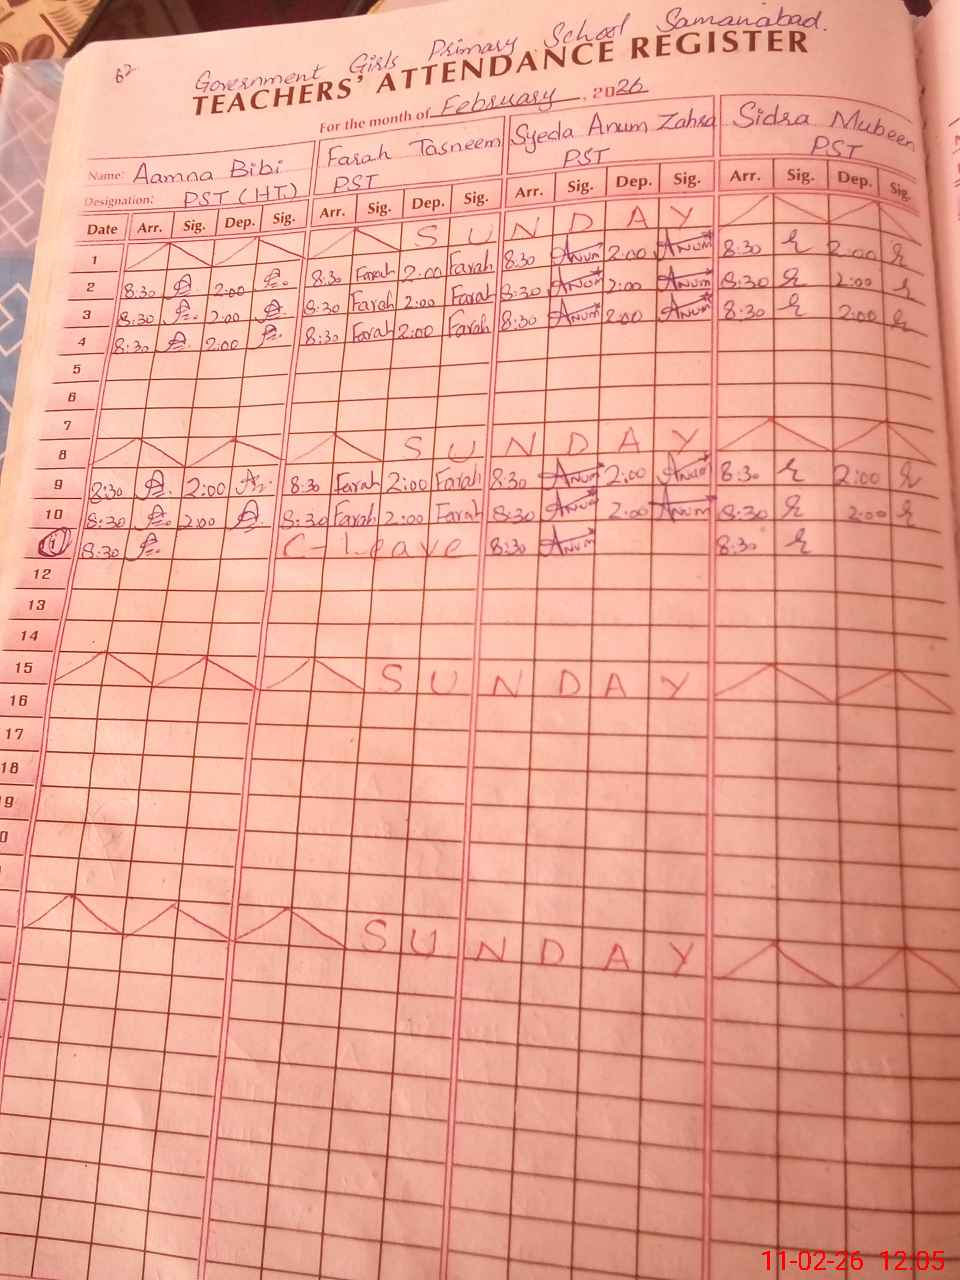 62
Government Girls Primary School Samanabad.
TEACHERS' ATTENDANCE REGISTER
For the month of February, 2026
Name: Aamna Bibi Farah Tasneem Syeda Anum Zahra Sidra Mubeen
Designation: PST (HT) PST PST PST
Date Arr. Sig. Dep. Sig. Arr. Sig. Dep. Sig. Arr. Sig. Dep. Sig. Arr. Sig. Dep. Sig.
1 SUNDAY
2 8:30 2:00 8:30 Farah 2:00 Farah 8:30 Anum 2:00 Anum 8:30 2:00
3 8:30 2:00 8:30 Farah 2:00 Farah 8:30 Anum 2:00 Anum 8:30 2:00
4 8:30 2:00 8:30 Farah 2:00 Farah 8:30 Anum 2:00 Anum 8:30 2:00
5
6
7
8 SUNDAY
9 8:30 2:00 8:30 Farah 2:00 Farah 8:30 Anum 2:00 Anum 8:30 2:00
10 8:30 2:00 8:30 Farah 2:00 Farah 8:30 Anum 2:00 Anum 8:30 2:00
8:30 C-Leave 8:30 Anum 8:30
12
13
14
15 SUNDAY
16
17
18
9
0
SUNDAY
11-02-26 12:05